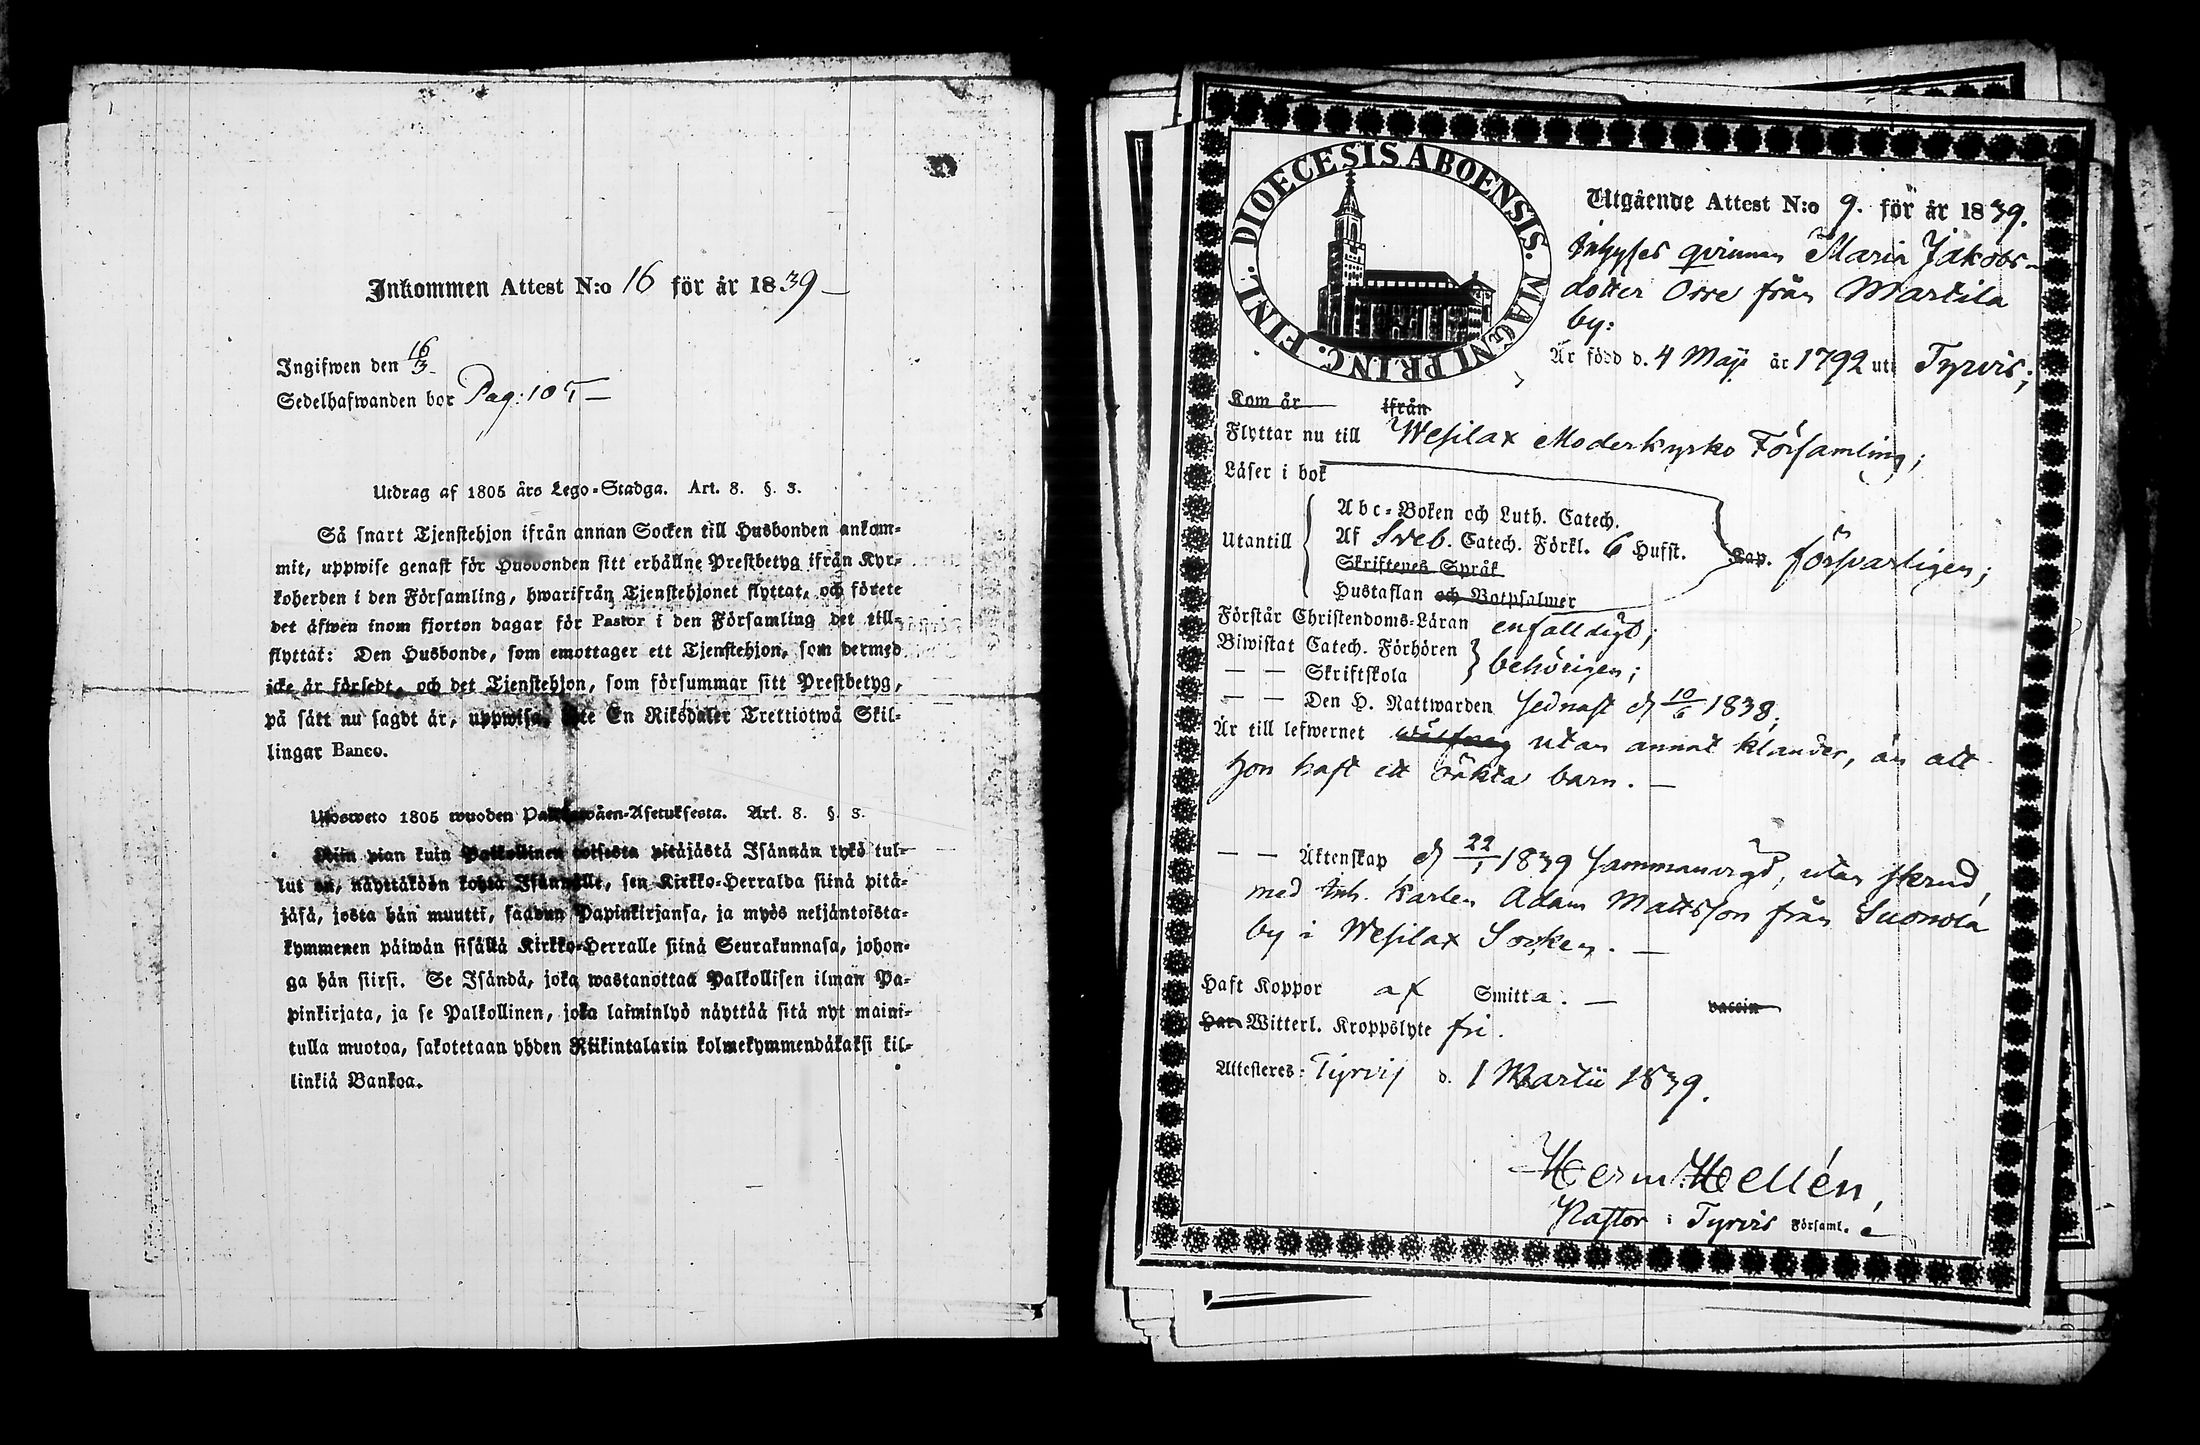 Inkommen Attest N:o 16 för år 1839 —
Ingifwen den 16/3
Sedelhafwanden bor Pag: 105 —
Utdrag af 1805 års Lego-Stadga. Art. 8. §. 3.
Så snart Tjenstehjon ifrån annan Socken till Husbonden ankom-
mit, uppwise genast för Husbonden sitt erhållne Prestbetyg ifrån Kyr-
koherden i den Församling, hwarifrån Tjenstehjonet flyttat, och förete
det äfwen inom fjorton dagar för Pastor i den Församling det till-
flyttat: Den Husbonde, som emottager ett Tjenstehjon, som dermed
icke är försedt, och det Tjenstehjon, som försummar sitt Prestbetyg,
på sätt nu sagdt är, uppwisa, böte En Riksdaler Trettiotwå Skil-
lingar Banco.
Ulosweto 1805 wuoden Palkkawäen-Asetuksesta. Art. 8. §. 3.
Niin pian kuin Palkollinen toisesta pitäjästä Isännän tykö tul-
lut on, näyttäköön kohta Isännälle, sen Kirkko-Herralda siinä pitä-
jäsä, josta hän muutti, saadun Papinkirjansa, ja myös neljäntoista-
kymmenen päiwän sisällä Kirkko-Herralle siinä Seurakunnasa, johon-
ga hän siirsi. Se Isändä, joka wastanottaa Palkollisen ilman Pa-
pinkirjata, ja se Palkollinen, joka laiminlyö näyttää sitä nyt maini-
tulla muotoa, sakotetaan yhden Riikintalarin kolmekymmendäkaksi kil-
linkiä Bankoa.
DIOECESIS ABOENSIS. MAGNI PRINC. FINL.
Utgående Attest N:o 9. för år 1839.
Inhyses qvinnan Maria Jakobs-
dotter Orre från Martila
by:
Är född d. 4 Maji år 1792 uti Tyrvis;
Kom år ifrån
Flyttar nu till Wesilax Moderkyrko Församling;
Läser i bok
Abc-Boken och Luth. Catech.
Utantill Af Sveb. Catech. Förkl. 6 Hufst. Kap. försvarligen;
Skriftenes Språk
Hustaflan och Botpsalmer
Förstår Christendoms-Läran enfaldigt;
Biwistat Catech. Förhören
— — Skriftskola behörigen;
— — Den H. Nattwarden sednast d 10/6 1838;
Är till lefwernet utan annat klander, än att
hon haft ett oäkta barn. —
— — Äktenskap d 22/1 1839 sammanvigd, utan skrud,
med Inh. Karlen Adam Mattsson från Suonola
by i Wesilax Socken. —
Haft Koppor af Smitta. — vaccin
Har Witterl. Kroppslyte fri.
Attesteres: Tyrvis d. 1 Martii 1839.
Herm: Hellén,
Pastor i Tyrvis Församl.